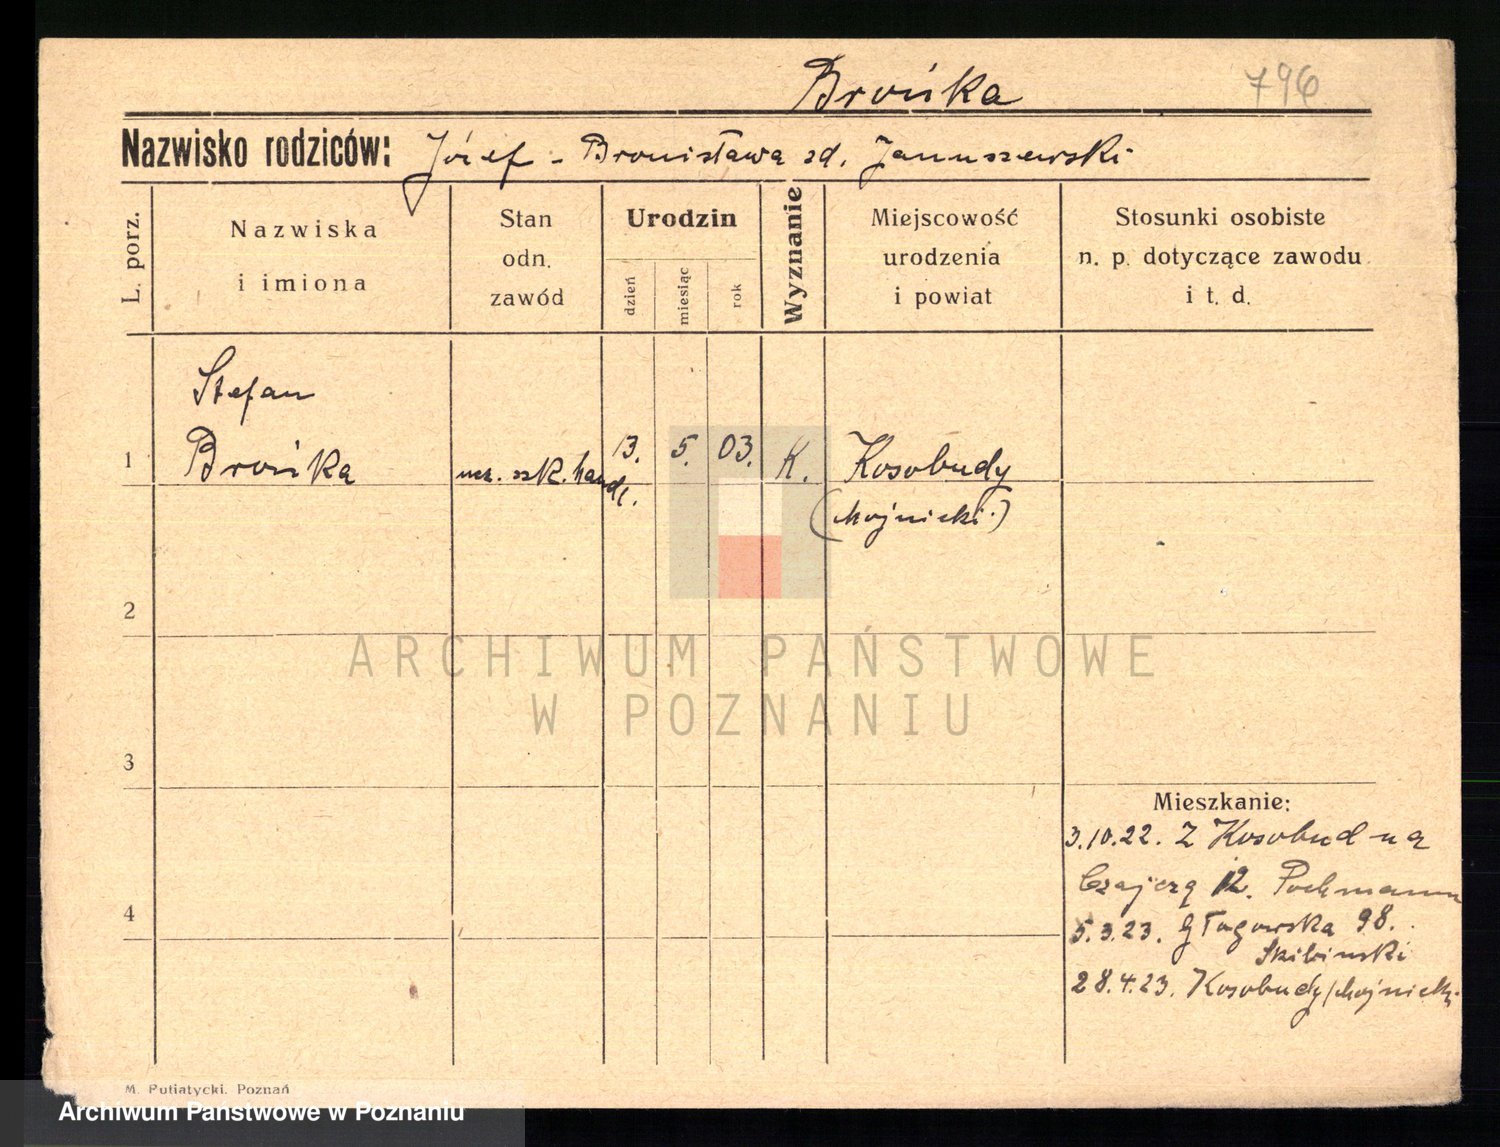 Brońka
796
Nazwisko rodziców: Józef - Bronisława zd. Januszewski
L. porz.
Nazwiska
i imiona
Stan
odn.
zawód
Urodzin
dzień
miesiąc
rok
Wyznanie
Miejscowość
urodzenia
i powiat
Stosunki osobiste
n. p. dotyczące zawodu
i t. d.
Stefan
1 Brońka ucz. szk. handl. 13. 5. 03. K. Kosobudy
(chojnicki.)
2
ARCHIWUM PAŃSTWOWE
W POZNANIU
3
Mieszkanie:
3.10.22. Z Kosobud na
Czajczą 12. Pochmann
4
5.3.23. Głogowska 98.
Skibinski
28.4.23. Kosobudy/chojnicki.
M. Putiatycki, Poznań
Archiwum Państwowe w Poznaniu